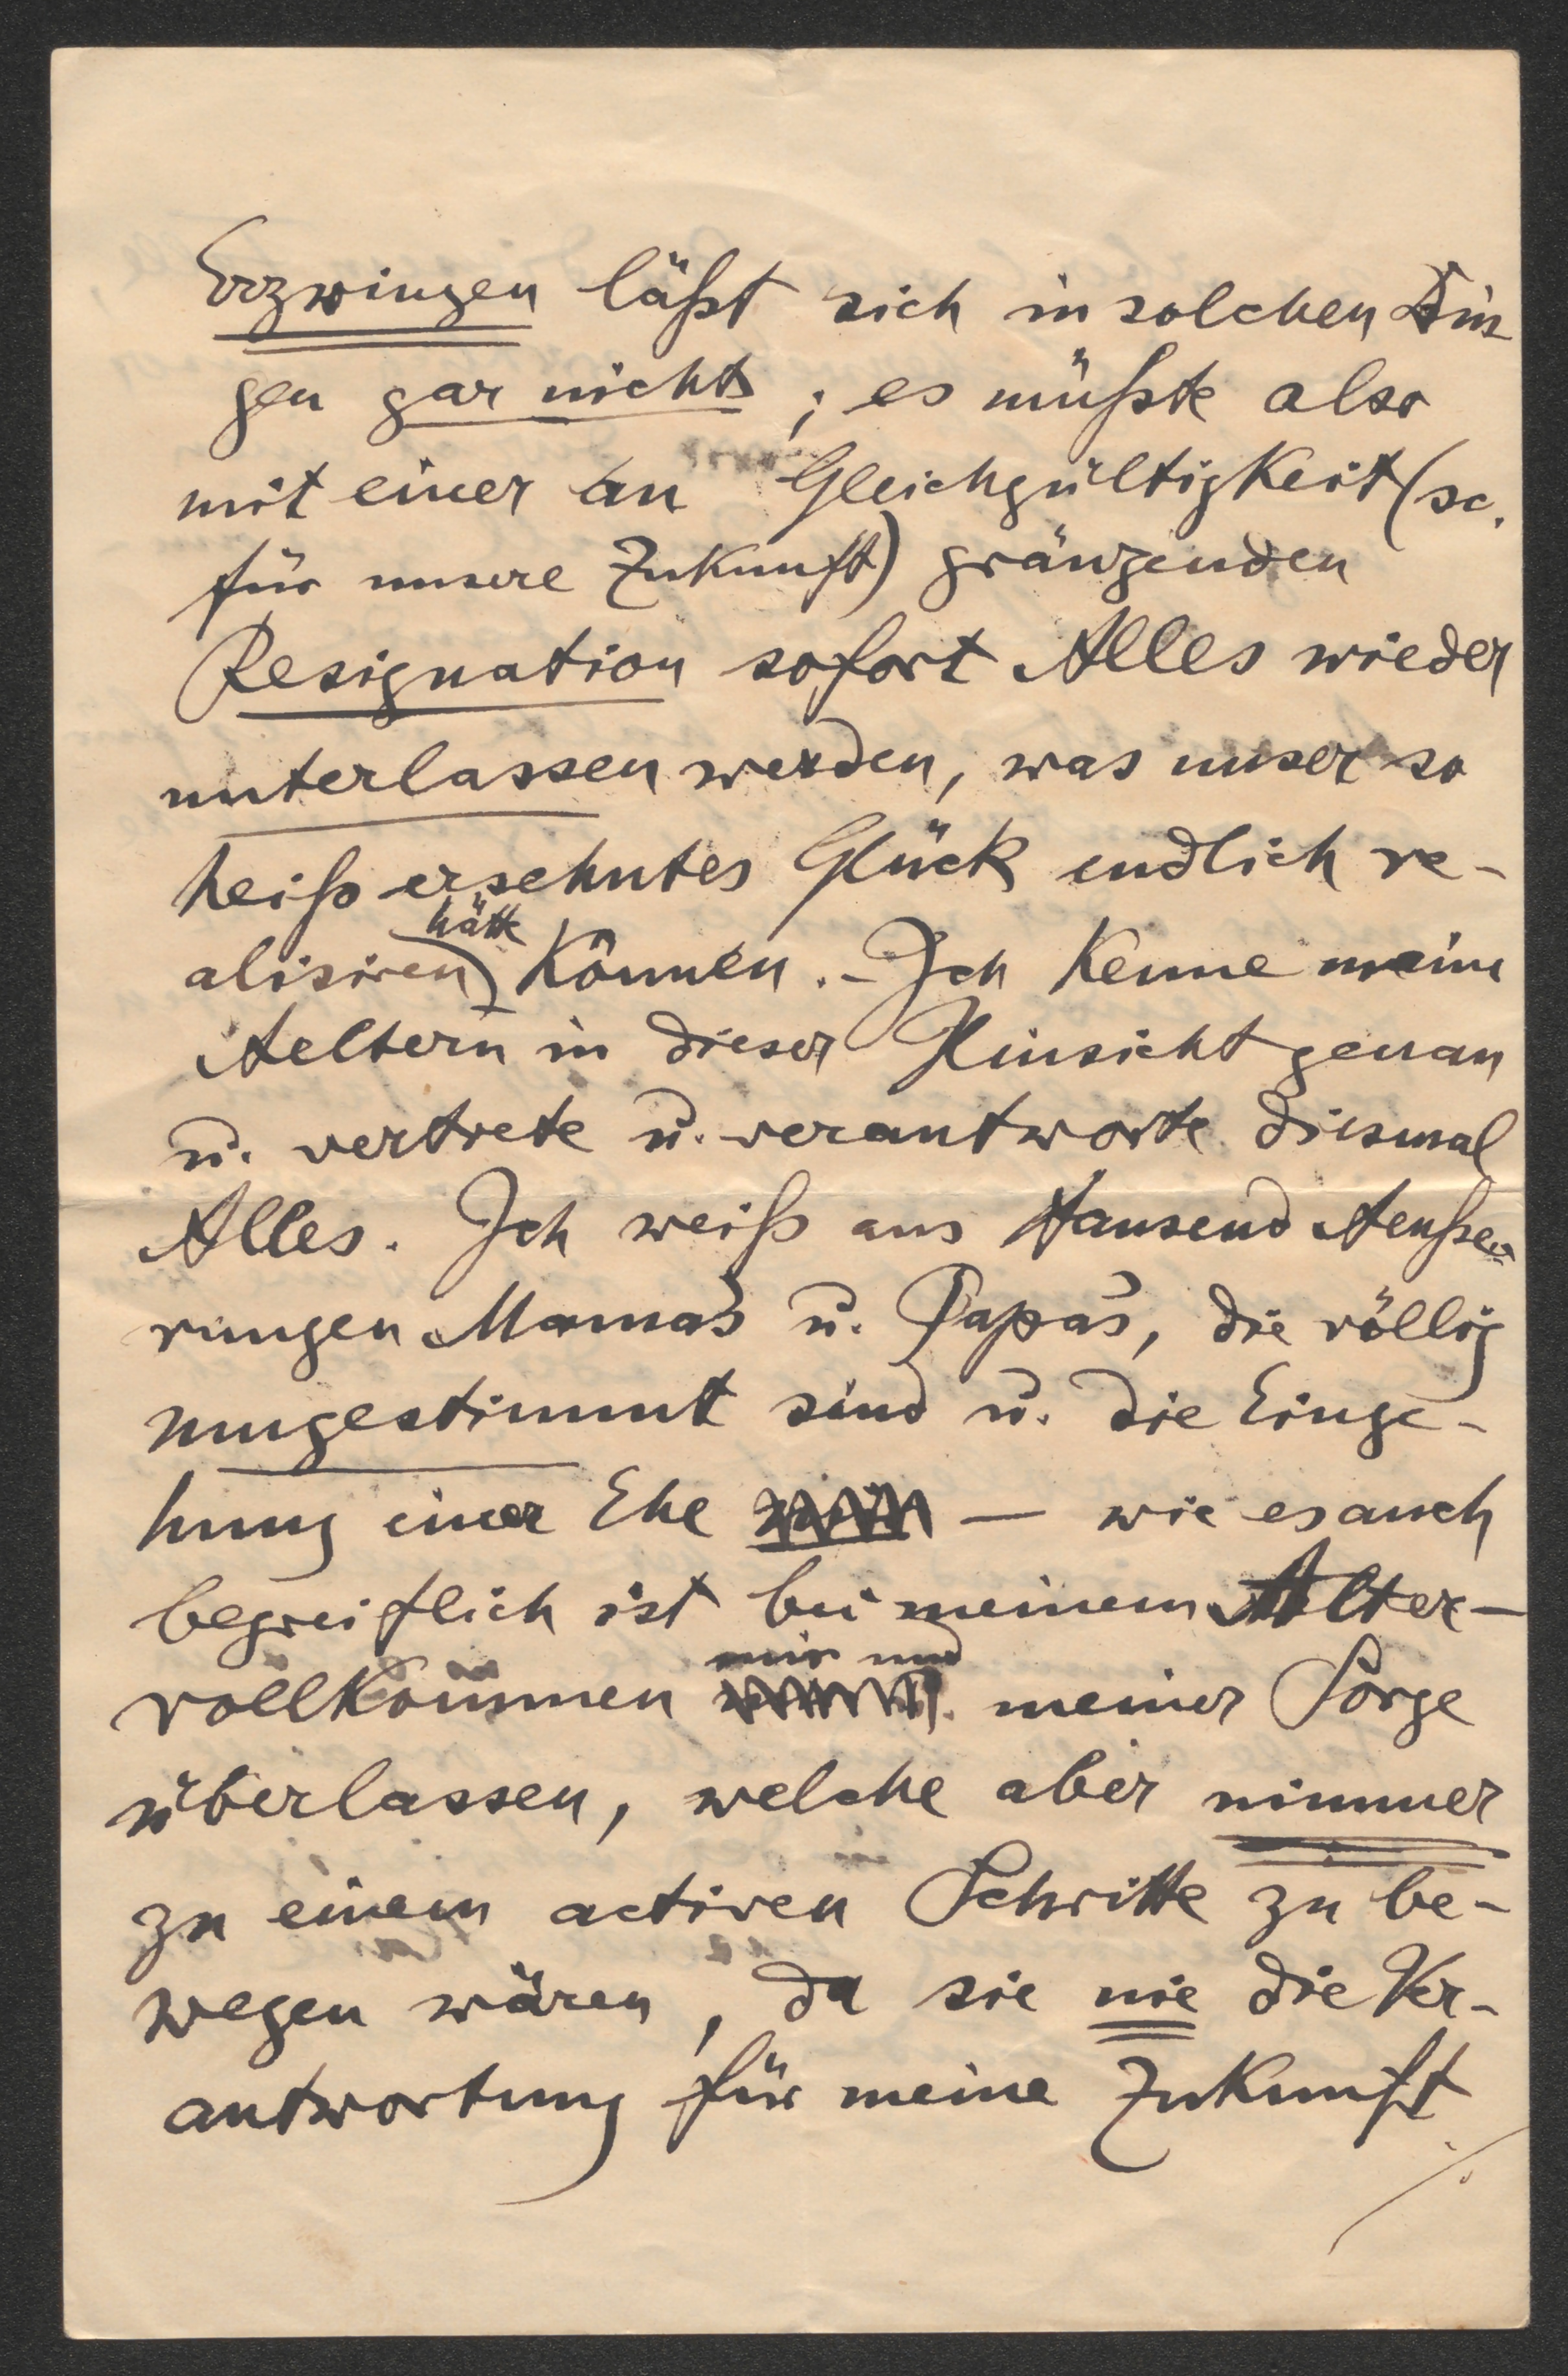 Erzwingen läßt sich in solchen Din-
gen gar nichts; es müßte also
mit einer an Gleichgültigkeit (sc.
für unsere Zukunft) gränzenden
Resignation sofort Alles wieder
unterlassen werden, was unser so
heiß ersehntes Glück endlich re-
hätte
alisiren können. - Ich kenne meine
Aeltern in dieser Hinsicht genau
u. vertrete u. verantworte diesmal
Alles. Ich weiß aus tausend Aeuße-
rungen Mama's u. Papa's, die völlig
umgestimmt sind u. die Einge-
hung einer Ehe — wie es auch
begreiflich ist bei meinem Alter —
mir und
vollkommen meiner Sorge
überlassen, welche aber nimmer
zu einem activen Schritte zu be-
wegen wären, da sie nie die Ver-
antwortung für meine Zukunft
./.